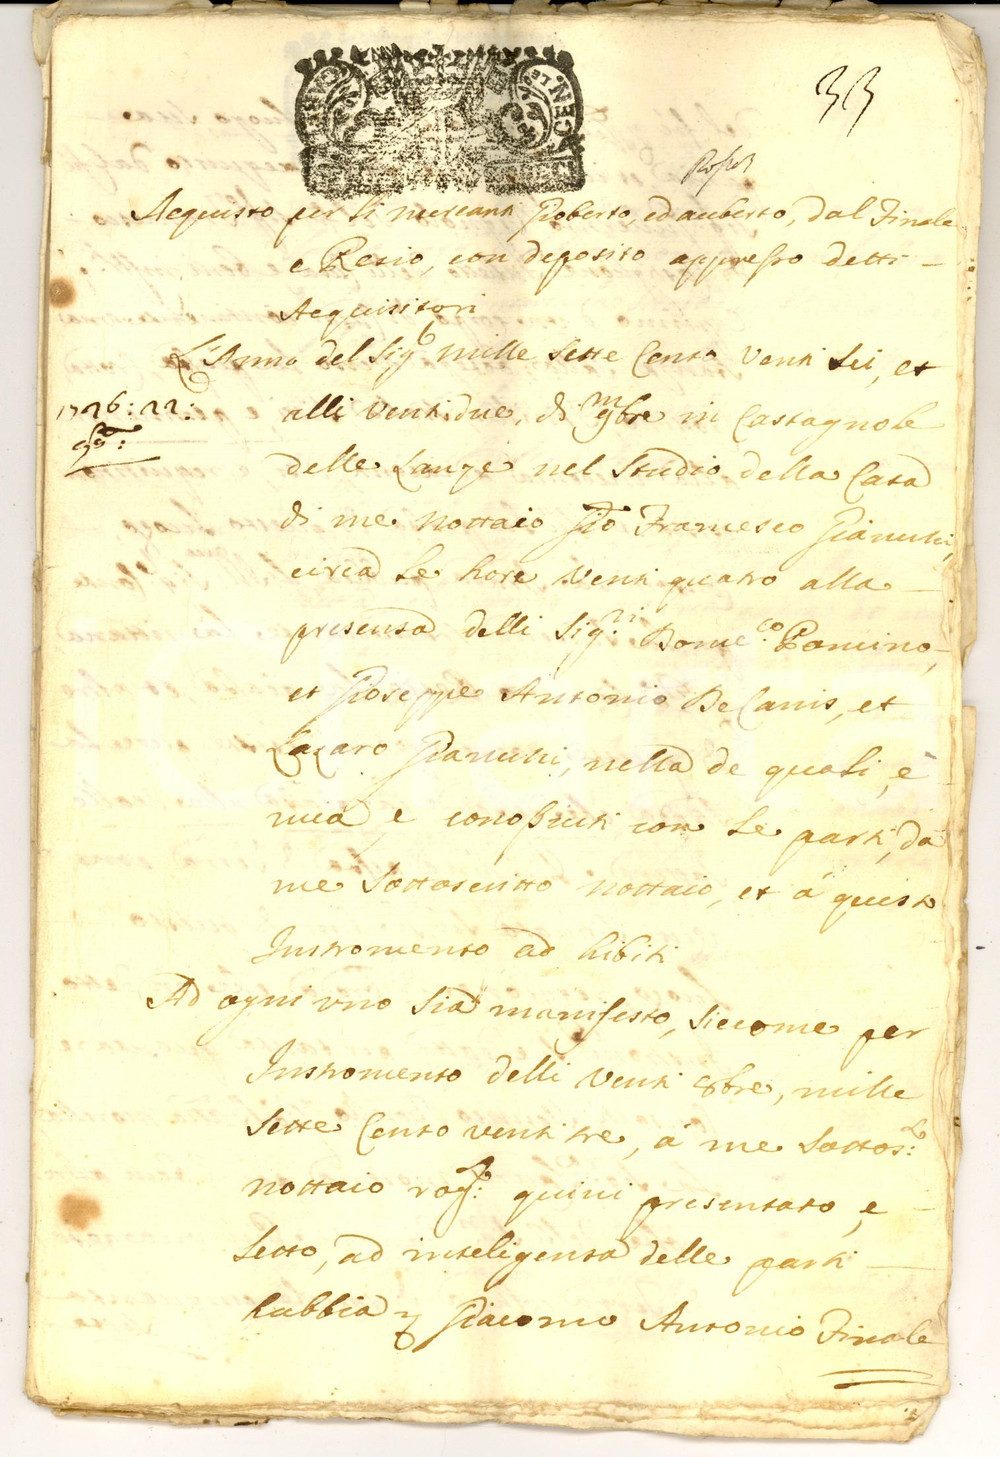 33
Acquisto per li mercanti Roberto, ed auberto, dal Finale
e Resio, con deposito appresso detti
Acquisitori
L'Anno del Sig.r mille sette Cento Venti Sei, et
1726: 22:
9bre:
alli Venti due, di 9mbre in Castagnole
delle Lanze nel Studio della Casa
di me nottaio Gio Francesco Gianulti,
circa le hore Venti quatro alla
presensa delli Sig.ri Dome.co Pomino,
et Gioseppe Antonio De Canis, et
Lazaro Gianulti, nella de quali, è
mia e conossuti con le parti, da
me sottoscritto nottaio, et à questo
Instromento ad hibiti
Ad ogni vno sia manifesto, siccome per
Instromento delli Venti 8bre, mille
sette Cento venti tre, à me sottos:
nottaio rog: quivi presentato, e
letto, ad inteligensa delle parti
habbia Giacomo Antonio Finale